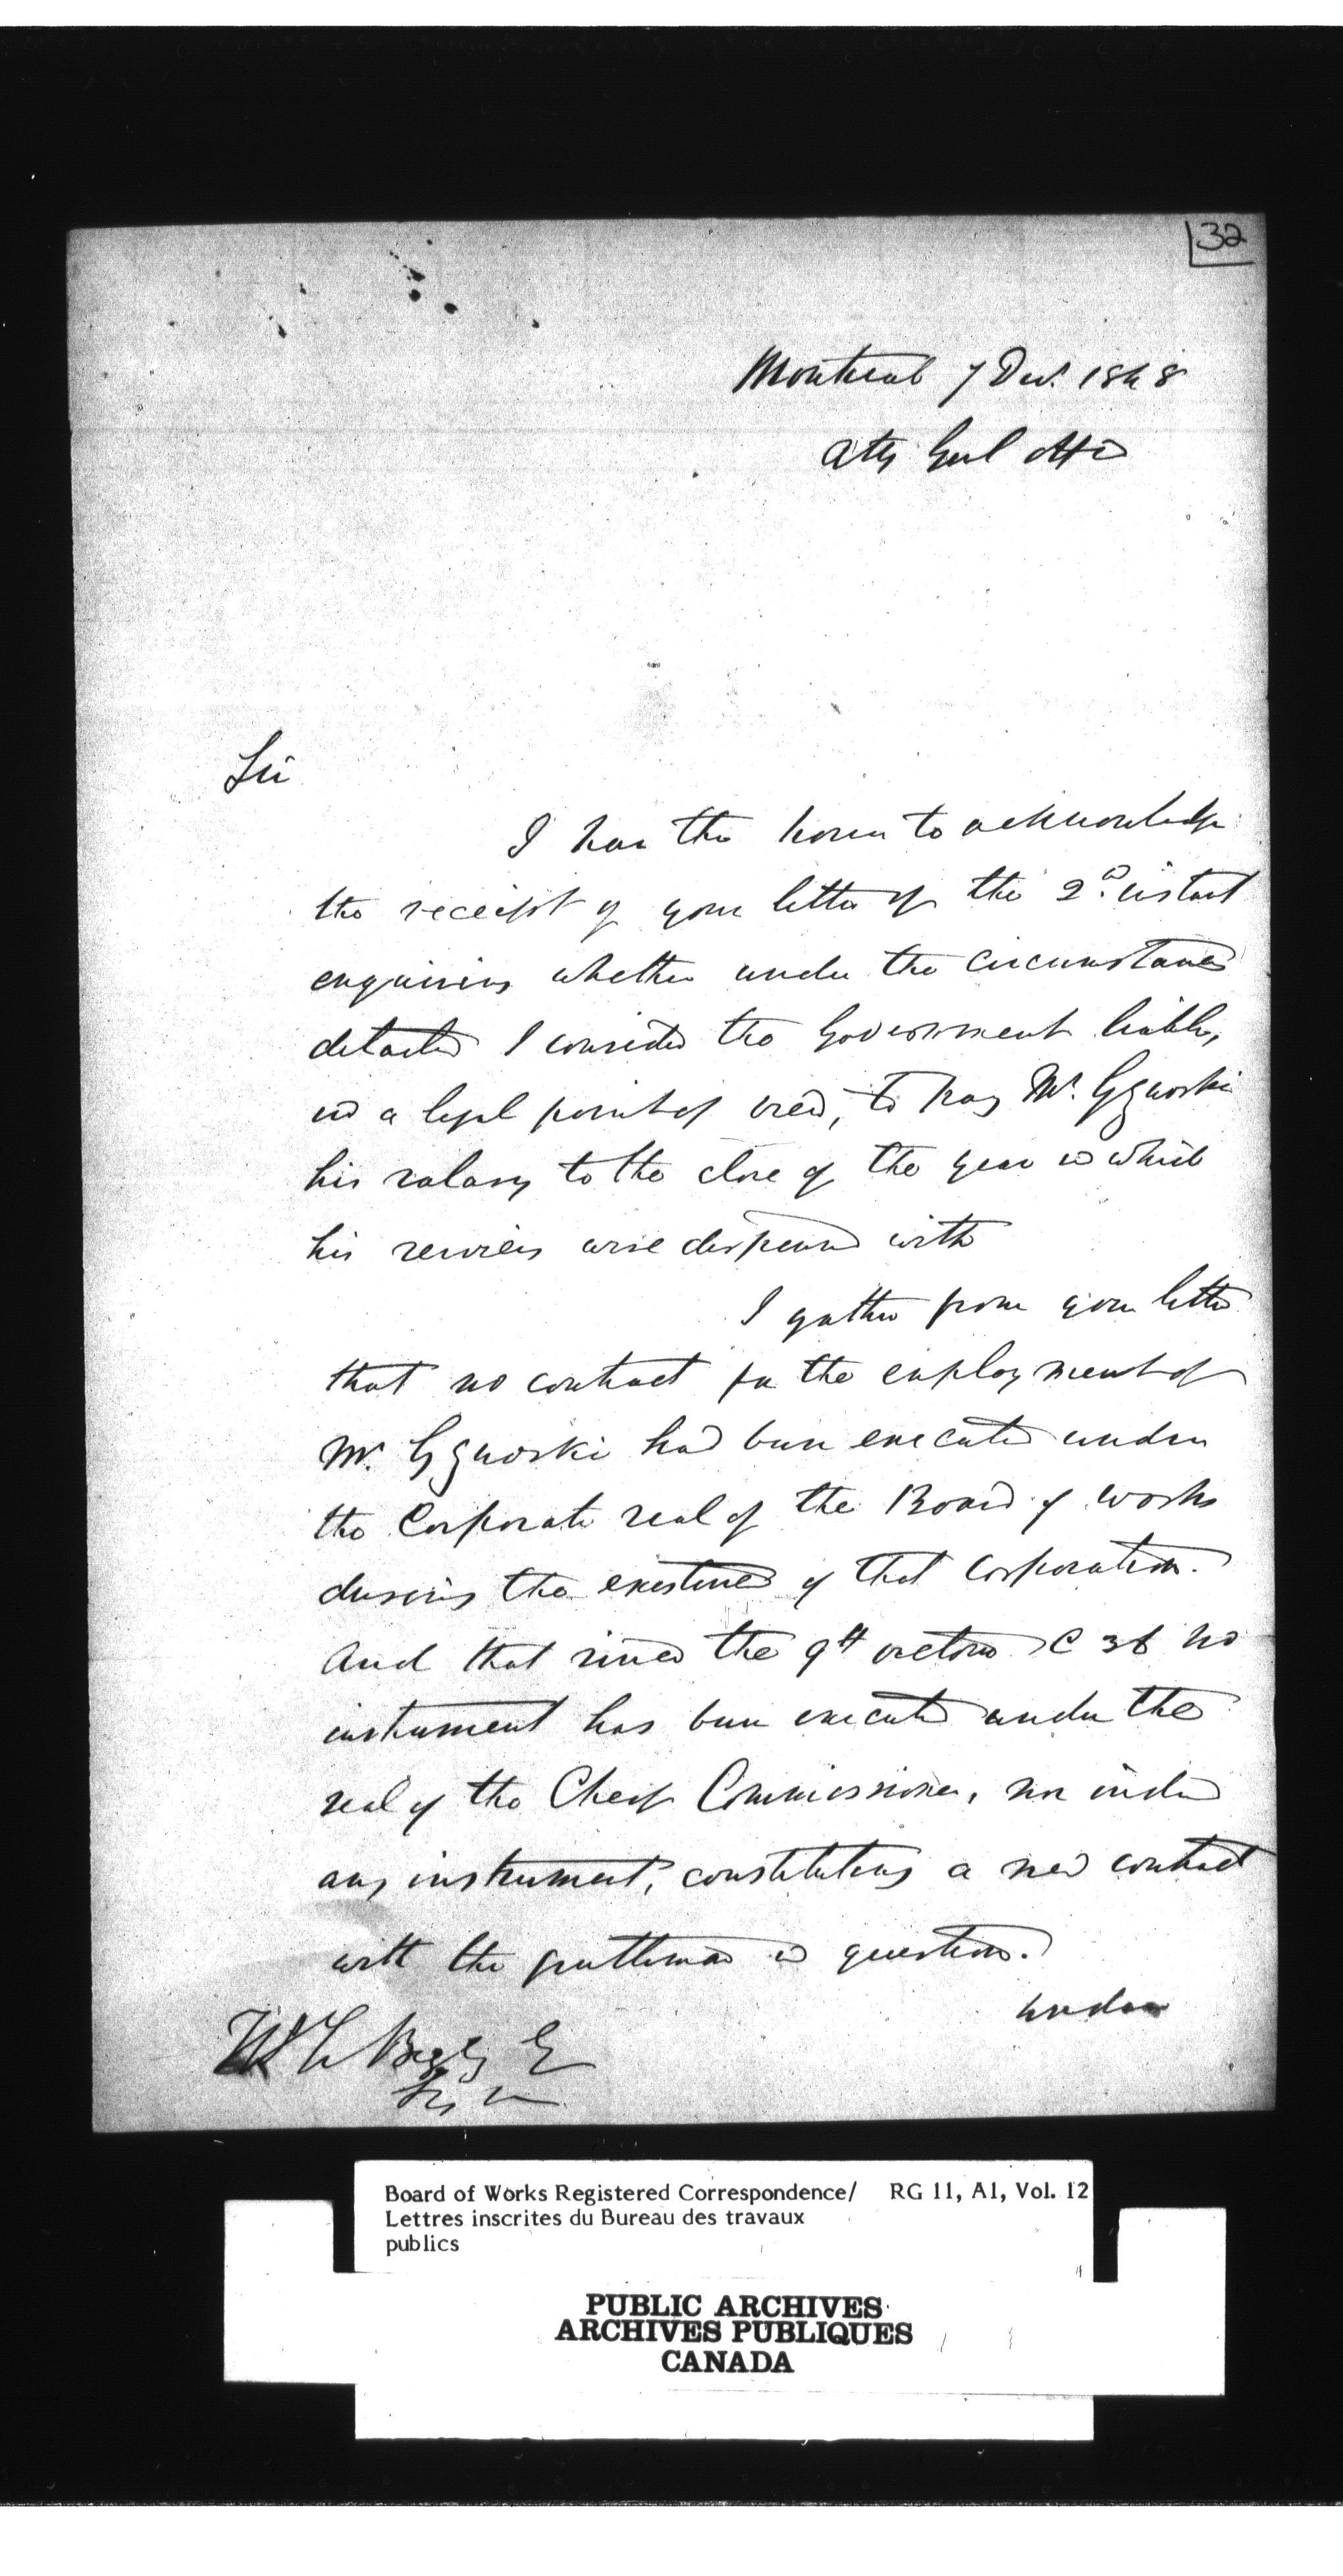 32
Montreal 7 Decr. 1848
Atty Genl Office
Sir
I have the honor to acknowledge
the receipt of your letter of the 2d. instant
enquiring whether under the circumstances
detailed I consider the Government liable,
in a legal point of view, to pay Mr. Gzowski
his salary to the close of the year in which
his services were dispensed with
I gather from your letter
that no contract for the employment of
Mr. Gzowski had been executed under
the Corporate seal of the Board of Works
during the existence of that Corporation.
And that since the 9th Victoria C 36 no
instrument has been executed under the
seal of the Chief Commissioner, nor indeed
any instrument, constituting a new contract
with the gentleman in question.
Under
Begly
Board of Works Registered Correspondence/ RG 11, A1, Vol. 12
Lettres inscrites du Bureau des travaux
publics
PUBLIC ARCHIVES
ARCHIVES PUBLIQUES
CANADA